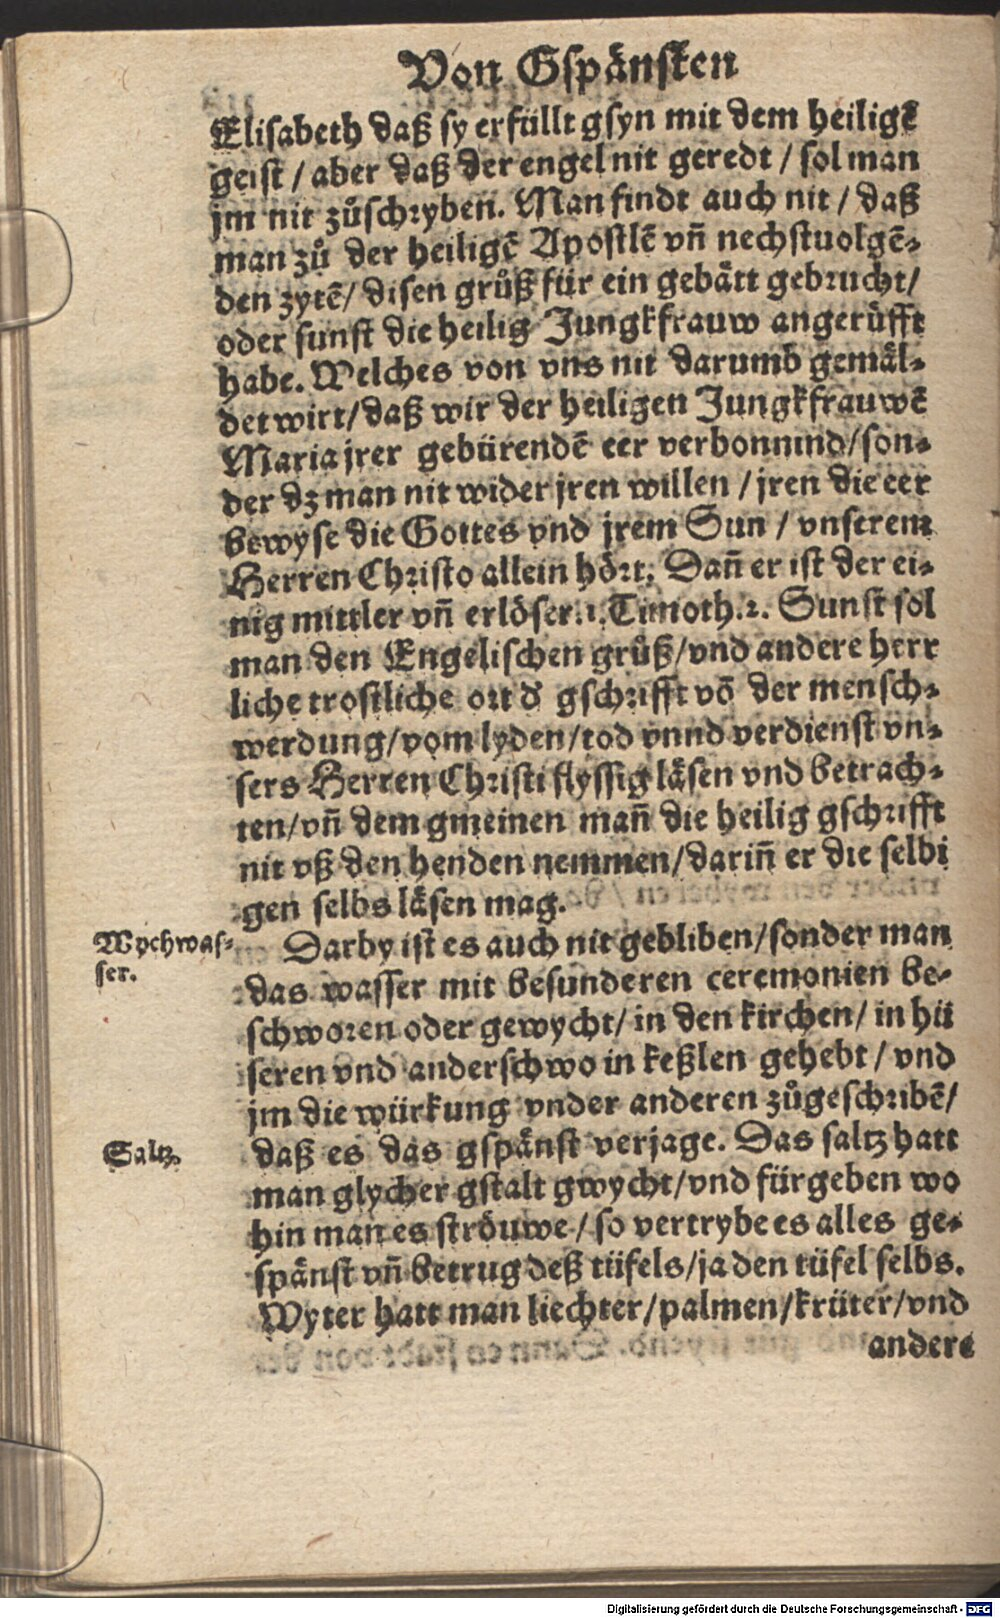 Von Gspänsten
Elisabeth daß sy erfüllt gsyn mit dem heiligē
geist / aber daß der engel nit geredt / sol man
jm nit zůschryben. Man findt auch nit / daß
man zů der heiligē Apostlē vñ nechstuolgē-
den zytē / disen grůß für ein gebätt gebrucht /
oder sunst die heilig Jungkfrauw angerüfft
habe. Welches von vns nit darumb gemäl-
det wirt / daß wir der heiligen Jungkfrauwē
Maria jrer gebürendē eer verbonnind / son-
der dz man nit wider jren willen / jren die eer
bewyse die Gottes vnd jrem Sun / vnserem
Herren Christo allein hört. Dañ er ist der ei-
nig mittler vñ erlöser. 1. Timoth. 2. Sunst sol
man den Engelischen grůß / vnd andere herr
liche trostliche ort d' gschrifft vō der mensch-
werdung / vom lyden / tod vnnd verdienst vn-
sers Herren Christi flyssig läsen vnd betrach-
ten / vñ dem gmeinen mañ die heilig gschrifft
nit vß den henden nemmen / dariñ er die selbi
gen selbs läsen mag.
Wychwas-
ser.
Darby ist es auch nit gebliben / sonder man
das wasser mit besunderen ceremonien be-
schworen oder gewycht / in den kirchen / in hü
seren vnd anderschwo in keßlen gehebt / vnd
jm die würkung vnder anderen zůgeschribē /
Saltz.
daß es das gspänst verjage. Das saltz hatt
man glycher gstalt gwycht / vnd fürgeben wo
hin man es ströuwe / so vertrybe es alles ge-
spänst vñ betrug deß tüfels / ja den tüfel selbs.
Wyter hatt man liechter / palmen / krüter / vnd
andere
Digitalisierung gefördert durch die Deutsche Forschungsgemeinschaft - DFG